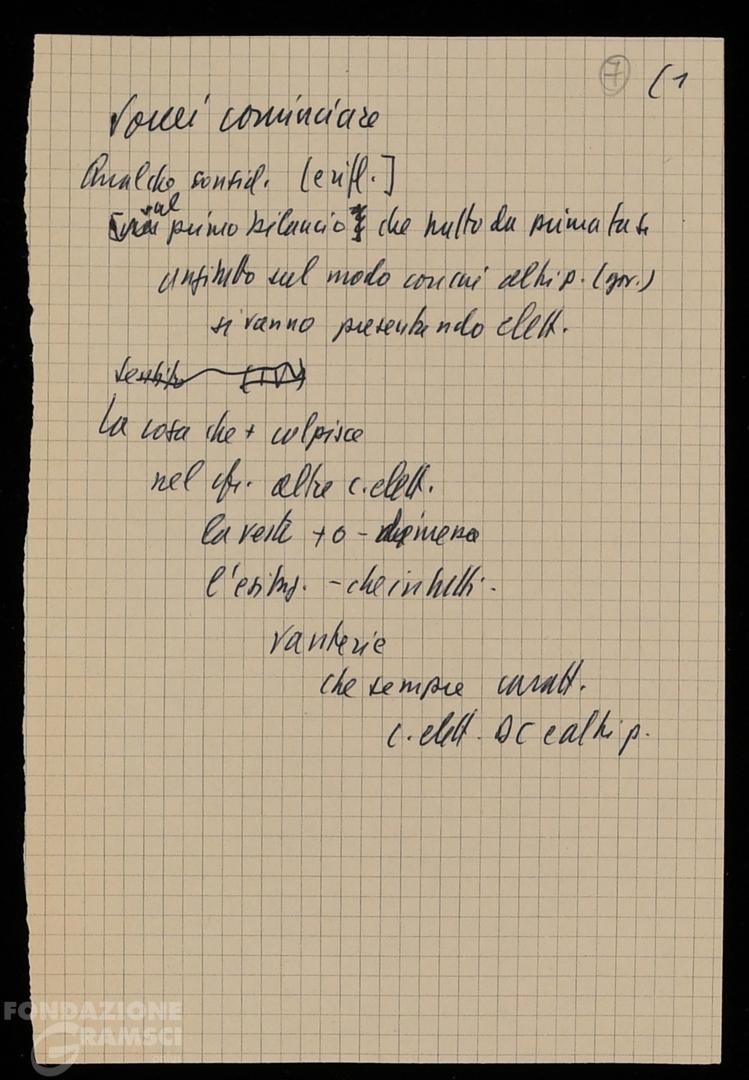 7 (1
Vorrei cominciare
Qualche consid. (e rifl.]
sul
primo bilancio che tratto da prima fase
anzitutto sul modo con cui altri p. (gov.)
si vanno presentando elett.
La cosa che + colpisce
nel cfr. altre c. elett.
la veste + o - dimessa
l'esibiz. - che in tutti.
vanterie
che sempre caratt.
c. elett. DC e altri p.
FONDAZIONE
GRAMSCI
onlus